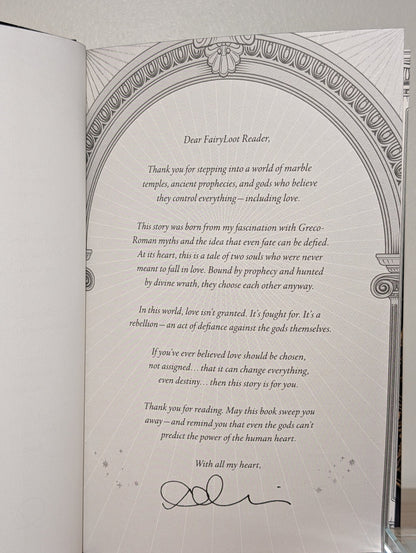 Dear FairyLoot Reader,
Thank you for stepping into a world of marble
temples, ancient prophecies, and gods who believe
they control everything—including love.
This story was born from my fascination with Greco-
Roman myths and the idea that even fate can be defied.
At its heart, this is a tale of two souls who were never
meant to fall in love. Bound by prophecy and hunted
by divine wrath, they choose each other anyway.
In this world, love isn't granted. It's fought for. It's a
rebellion—an act of defiance against the gods themselves.
If you've ever believed love should be chosen,
not assigned… that it can change everything,
even destiny… then this story is for you.
Thank you for reading. May this book sweep you
away—and remind you that even the gods can't
predict the power of the human heart.
With all my heart,